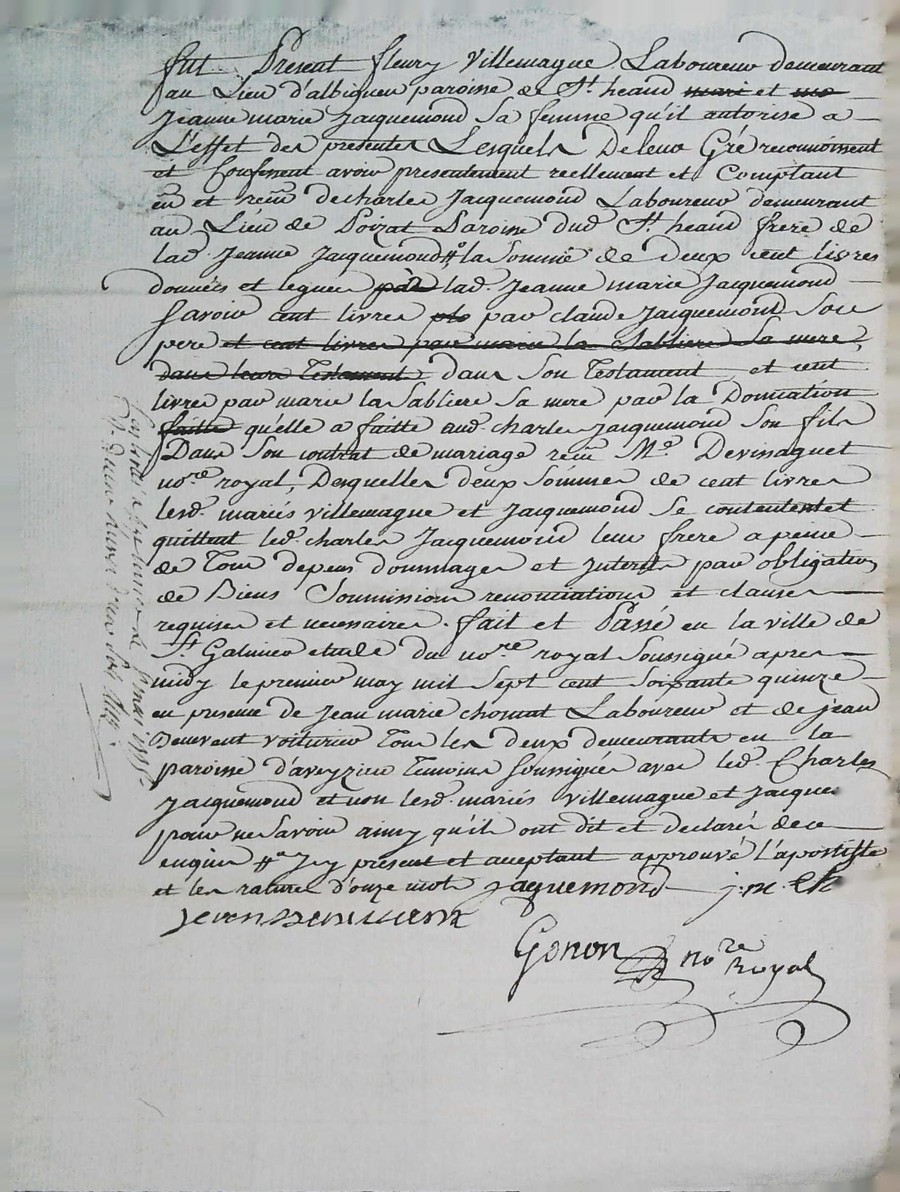 fut Present fleury Villemagne Laboureur demeurant
au Lieu d'albigneu paroisse de St. heand mari et
Jeanne marie Jacquemond Sa femme qu'il autorise a
L'effet des presentes Lesquels De leur Gré reconnoissent
et Confessent avoir presentement reellement et Comptant
eû et reçû de charles Jacquemond Laboureur demeurant
au Lieu de Poizat Paroisse dud. St. heand frere de
lad. Jeanne Jacquemond # la Somme de deux cent livres
donnés et legués lad. Jeanne marie Jacquemond
Savoir cent livres par claude Jacquemond Son
pere et cent livres par marie la Sabliere Sa mere,
dans leurs Testament dans Son Testament et cent
livres par marie la Sabliere Sa mere par la Donnation
faitte qu'elle a faitte aud. charles Jacquemond Son fils
Dans Son contrat de mariage reçu Me. Devinaguet
nore. royal, Desquelles deux Sommes de cent livres
lesd. mariés villemagne et Jacquemond Se contentent et
quittent led. charles Jacquemond leur frere a peine
de Tous depens dommages et Interets par obligation
de Biens Soumissions renontiations et clauses
requises et necessaires. fait et Passé en la ville de
St. Galmier etude du nore. royal Soussigné apres
midy le premier may mil Sept cent Soixante quinze
en presence de Jean marie chomat Laboureur et de jean
voiturier Tous les deux demeurants en la
paroisse d'aveyzieu Temoins Soussignés avec led. Charles
Jacquemond et non lesd. mariés villemagne et Jacque
pour ne Savoir ainsy qu'ils ont dit et declarés de ce
enquis # Icy présent et acceptant approuvé l'apostille
et les ratures d'onze mots jaquemond j. m. Ch
Gonon nore
Royal